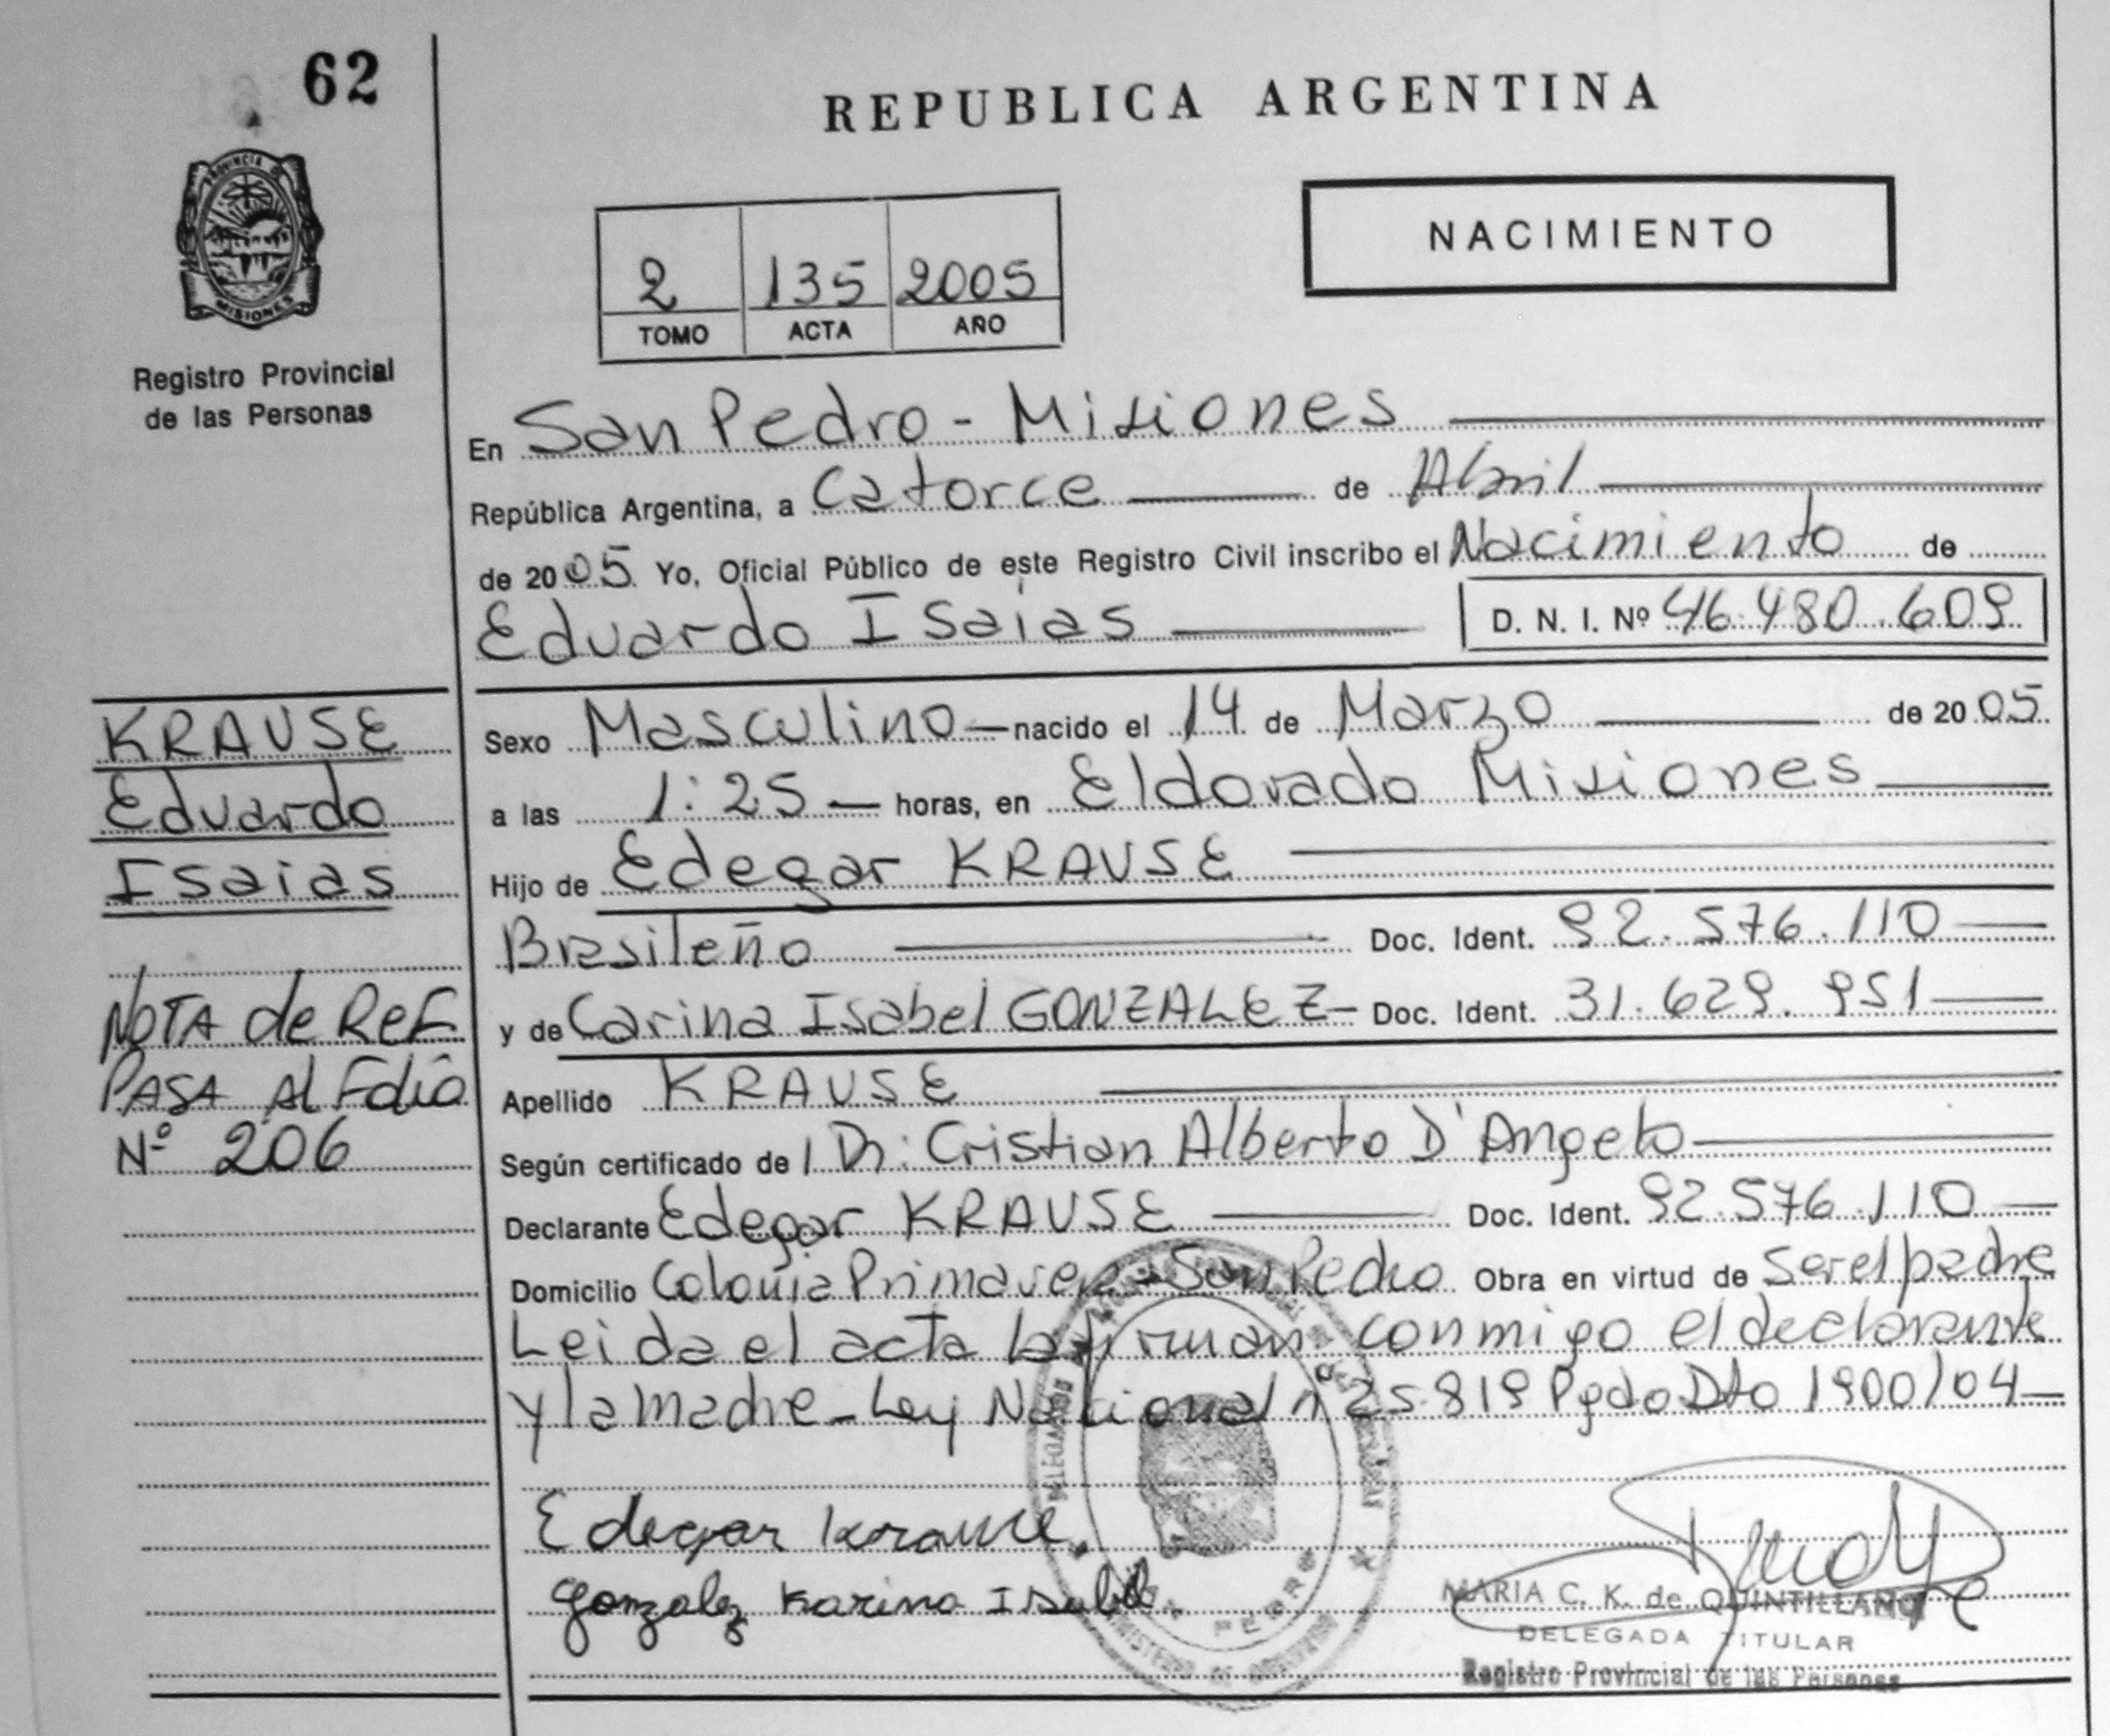 62
REPUBLICA ARGENTINA
PROVINCIA DE
MISIONES
Registro Provincial
de las Personas
NACIMIENTO
2 135 2005
TOMO ACTA AÑO
En San Pedro - Misiones
República Argentina, a Catorce de Abril
de 2005 Yo, Oficial Público de este Registro Civil inscribo el Nacimiento de
Eduardo Isaias D. N. I. Nº 46.480.609
KRAUSE
Eduardo
Isaias
NOTA de REF.
PASA Al Folio
Nº 206
Sexo Masculino nacido el 14 de Marzo de 2005
a las 1:25 horas, en Eldorado Misiones
Hijo de Edegar KRAUSE
Brasileño Doc. Ident. 92.576.110
y de Carina Isabel GONZALEZ Doc. Ident. 31.629.951
Apellido KRAUSE
Según certificado de l Dr: Cristian Alberto D'Angelo
Declarante Edegar KRAUSE Doc. Ident. 92.576.110
Domicilio Colonia Primavera - San Pedro Obra en virtud de Ser el padre
Leida el acta la firman conmigo el declarante
y la madre - Ley Nacional nº 25.819 Pgdo Dto 1900/04
Edegar Krause
Gonzalez Karina Isabel
PEDRO
MARIA C. K. de QUINTILLANO
DELEGADA TITULAR
Registro Provincial de las Personas